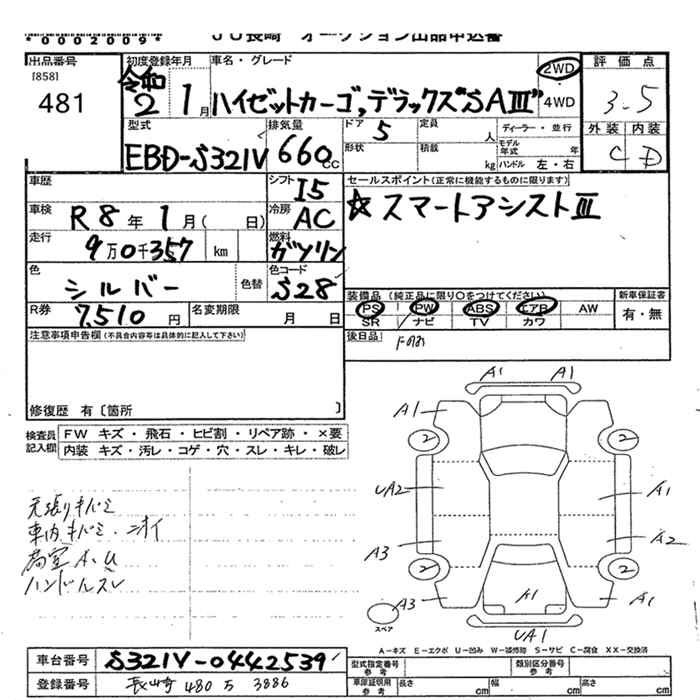 *0002009*
JU長崎 オークション出品申込書
出品番号 初度登録年月 車名・グレード 2WD 評価点
[858] 令和
481 2 1月 ハイゼットカーゴ,デラックス"SAⅢ" 4WD 3.5
型式 排気量 ドア 5 定員 人 ディーラー・並行 外装 内装
EBD-S321V 660cc 形状 積載 kg モデル年式 年 C D
ハンドル 左・右
車歴 シフト I5 セールスポイント(正常に機能するものに限ります)
車検 R8年1月( 日) 冷房 AC ☆スマートアシストⅢ
走行 9万0千357 km 燃料 ガソリン
色 シルバー 色替 色コード S28
装備品 (純正品に限り○をつけてください) 新車保証書
R券 7,510円 名変期限 月 日 PS PW ABS エアB AW 有・無
SR ナビ TV カワ
注意事項申告欄(不具合内容等は具体的に記入して下さい) 後日品
修復歴 有〔箇所 〕
検査員記入欄 FW キズ・飛石・ヒビ割・リペア跡・×要
内装 キズ・汚レ・コゲ・穴・スレ・キレ・破レ
A1 A1
A1
2 2
UA2 A1
A3 A2
2 2
A3 A1 A1
UA1
スペア
天張りキバミ
車内キバミ・ニオイ
荷室A、U
ハンドルスレ
A-キズ E-エクボ U-凹み W-補修跡 S-サビ C-腐食 XX-交換済
車台番号 S321V-0442539 型式指定番号 参考 類別区分番号 参考
登録番号 長崎 480 5 3886 車庫証明用 参考 長さ cm 幅 cm 高さ cm